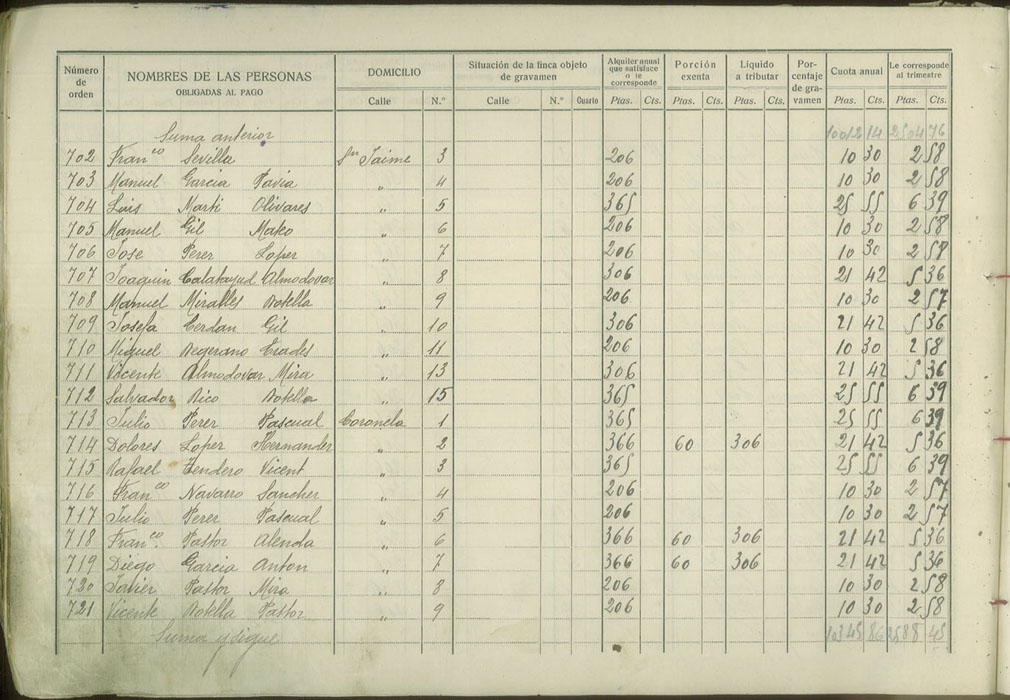 Número de orden NOMBRES DE LAS PERSONAS OBLIGADAS AL PAGO DOMICILIO Situación de la finca objeto de gravamen Alquiler anual que satisface o le corresponde Porción exenta Líquido a tributar Porcentaje de gravamen Cuota anual Le corresponde al trimestre
Calle N.º Calle N.º Cuarto Ptas. Cts. Ptas. Cts. Ptas. Cts. Ptas. Cts. Ptas. Cts.
Suma anterior 10012 14 2504 76
702 Fran.co Sevilla Sn Jaime 3 206 10 30 2 58
703 Manuel Garcia Pavia " 4 206 10 30 2 58
704 Luis Marti Olivares " 5 365 25 55 6 39
705 Manuel Gil " 6 206 10 30 2 58
706 Jose Perez Lopez " 7 206 10 30 2 58
707 Joaquin Calatayud Almodovar " 8 306 21 42 5 36
708 Manuel Miralles Botella " 9 206 10 30 2 57
709 Josefa Cerdan Gil " 10 306 21 42 5 36
710 Miguel Bejerano Erades " 11 206 10 30 2 58
711 Vicente Almodovar Mira " 13 306 21 42 5 36
712 Salvador Rico Botella " 15 365 25 55 6 39
713 Julio Perez Pascual Coronela 1 365 25 55 6 39
714 Dolores Lopez Hernandez " 2 366 60 306 21 42 5 36
715 Rafael Tendero Vicent " 3 365 25 55 6 39
716 Fran.co Navarro Sanchez " 4 206 10 30 2 57
717 Julio Perez Pascual " 5 206 10 30 2 57
718 Fran.co Pastor Alenda " 6 366 60 306 21 42 5 36
719 Diego Garcia Anton " 7 366 60 306 21 42 5 36
720 Javier Pastor Mira " 8 206 10 30 2 58
721 Vicente Botella Pastor " 9 206 10 30 2 58
Suma y sigue 10345 86 2588 45